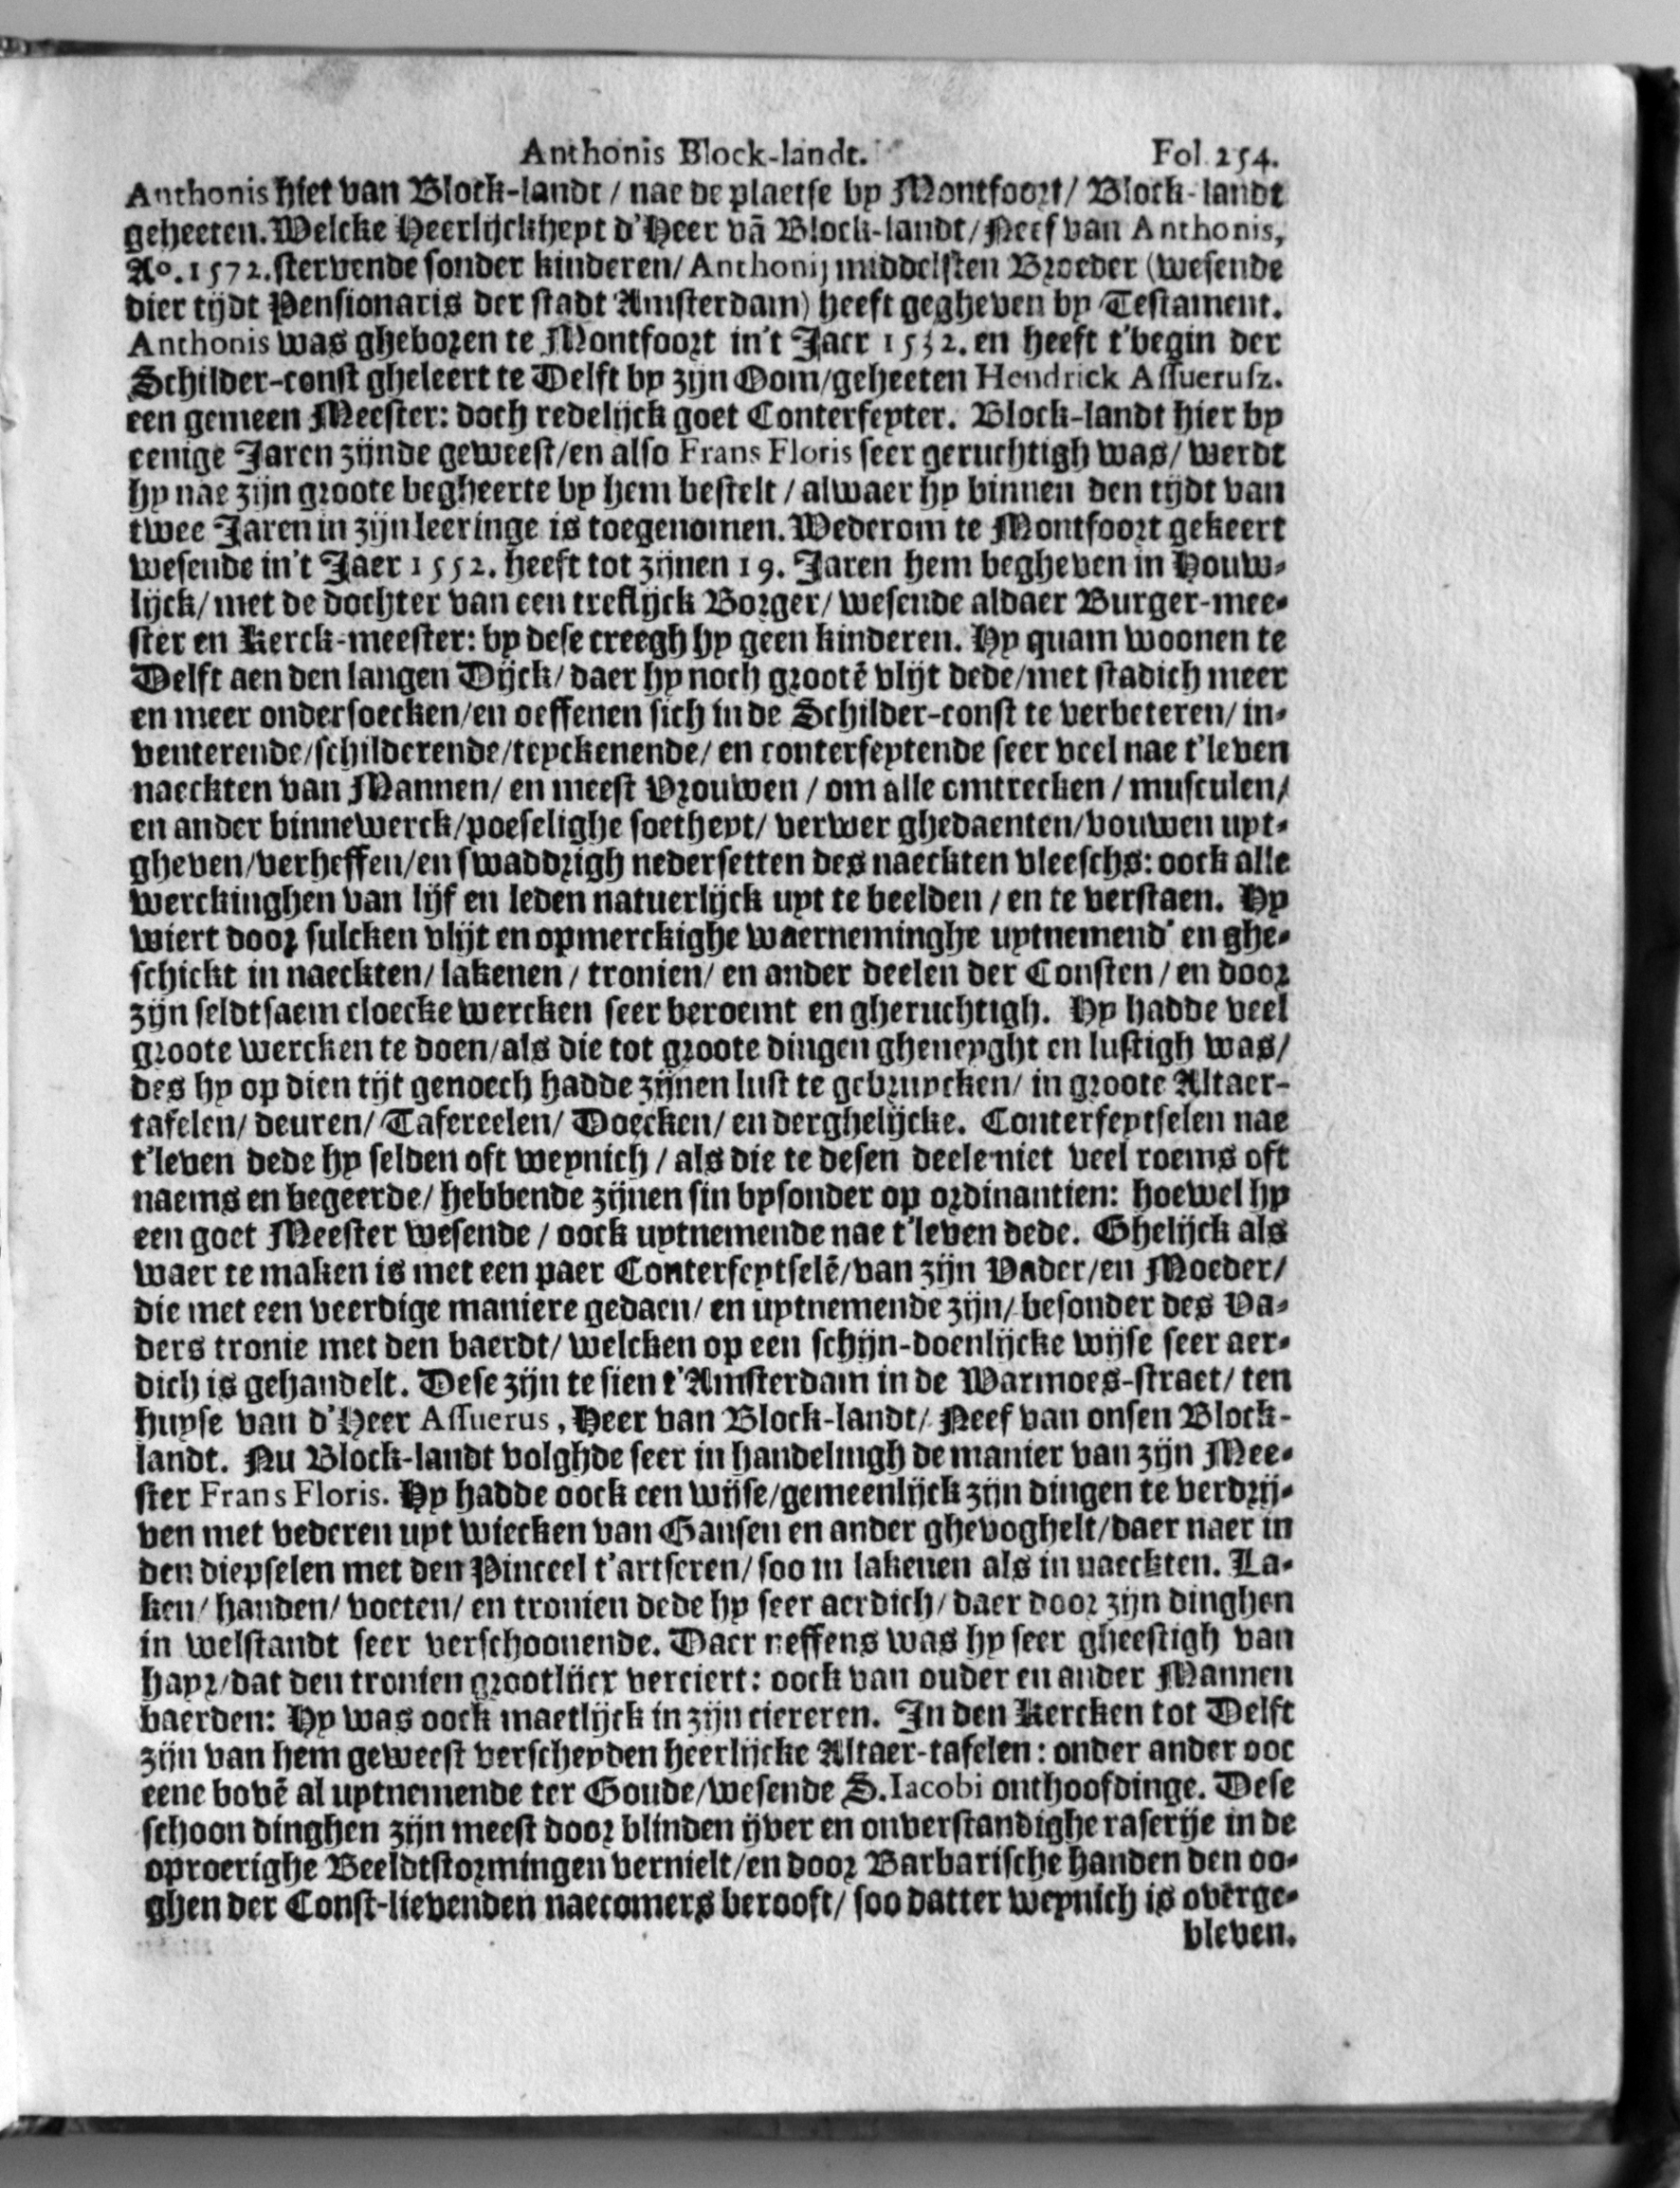 Anthonis Block-landt. Fol. 254.
Anthonis hiet van Block-landt / nae de plaetse by Montfoort / Block-landt
geheeten. Welcke Heerlijckheyt d'Heer vā Block-landt / Neef van Anthonis,
Aº. 1572. stervende sonder kinderen / Anthonij middelsten Broeder (wesende
dier tijdt Pensionaris der stadt Amsterdam) heeft gegheven by Testament.
Anthonis was gheboren te Montfoort in't Jaer 1532. en heeft t'begin der
Schilder-const gheleert te Delft by zijn Oom / geheeten Hendrick Assuerusz.
een gemeen Meester: doch redelijck goet Conterfeyter. Block-landt hier by
eenige Jaren zijnde geweest / en also Frans Floris seer geruchtigh was / werdt
hy nae zijn groote begheerte by hem bestelt / alwaer hy binnen den tijdt van
twee Jaren in zijn leeringe is toegenomen. Wederom te Montfoort gekeert
wesende in't Jaer 1552. heeft tot zijnen 19. Jaren hem begheven in Houw-
lijck / met de dochter van een treflijck Borger / wesende aldaer Burger-mee-
ster en Kerck-meester: by dese creegh hy geen kinderen. Hy quam woonen te
Delft aen den langen Dijck / daer hy noch grootē vlijt dede / met stadich meer
en meer ondersoecken / en oeffenen sich in de Schilder-const te verbeteren / in-
venterende / schilderende / teyckenende / en conterfeytende seer veel nae t'leven
naeckten van Mannen / en meest Vrouwen / om alle omtrecken / musculen /
en ander binnewerck / poeselighe soetheyt / verwer ghedaenten / vouwen uyt-
gheven / verheffen / en swaddrigh nedersetten des naeckten vleeschs: oock alle
werckinghen van lijf en leden natuerlijck uyt te beelden / en te verstaen. Hy
wiert door sulcken vlijt en opmerckighe waerneminghe uytnemend' en ghe-
schickt in naeckten / lakenen / tronien / en ander deelen der Consten / en door
zijn seldtsaem cloecke wercken seer beroemt en gheruchtigh. Hy hadde veel
groote wercken te doen / als die tot groote dingen gheneyght en lustigh was /
des hy op dien tijt genoech hadde zijnen lust te gebruycken / in groote Altaer-
tafelen / deuren / Tafereelen / Doecken / en derghelijcke. Conterfeytselen nae
t'leven dede hy selden oft weynich / als die te desen deele niet veel roems oft
naems en begeerde / hebbende zijnen sin bysonder op ordinantien: hoewel hy
een goet Meester wesende / oock uytnemende nae t'leven dede. Ghelijck als
waer te maken is met een paer Conterfeytselē / van zijn Vader / en Moeder /
die met een veerdige maniere gedaen / en uytnemende zijn / besonder des Va-
ders tronie met den baerdt / welcken op een schijn-doenlijcke wijse seer aer-
dich is gehandelt. Dese zijn te sien t'Amsterdam in de Warmoes-straet / ten
huyse van d'Heer Assuerus, Heer van Block-landt / Neef van onsen Block-
landt. Nu Block-landt volghde seer in handelingh de manier van zijn Mee-
ster Frans Floris. Hy hadde oock een wijse / gemeenlijck zijn dingen te verdrij-
ven met vederen uyt wiecken van Gansen en ander ghevoghelt / daer naer in
den diepselen met den Pinceel t'artseren / soo in lakenen als in naeckten. La-
ken / handen / voeten / en tronien dede hy seer aerdich / daer door zijn dinghen
in welstandt seer verschoonende. Daer neffens was hy seer gheestigh van
hayr / dat den tronien grootlijcx verciert: oock van ouder en ander Mannen
baerden: Hy was oock maetlijck in zijn cieren. In den Kercken tot Delft
zijn van hem geweest verscheyden heerlijcke Altaer-tafelen: onder ander ooc
eene bovē al uytnemende ter Goude / wesende S. Iacobi onthoofdinge. Dese
schoon dinghen zijn meest door blinden ijver en onverstandighe raserije in de
oproerighe Beeldtstormingen vernielt / en door Barbarische handen den oo-
ghen der Const-lievenden naecomers berooft / soo datter weynich is overge-
bleven.